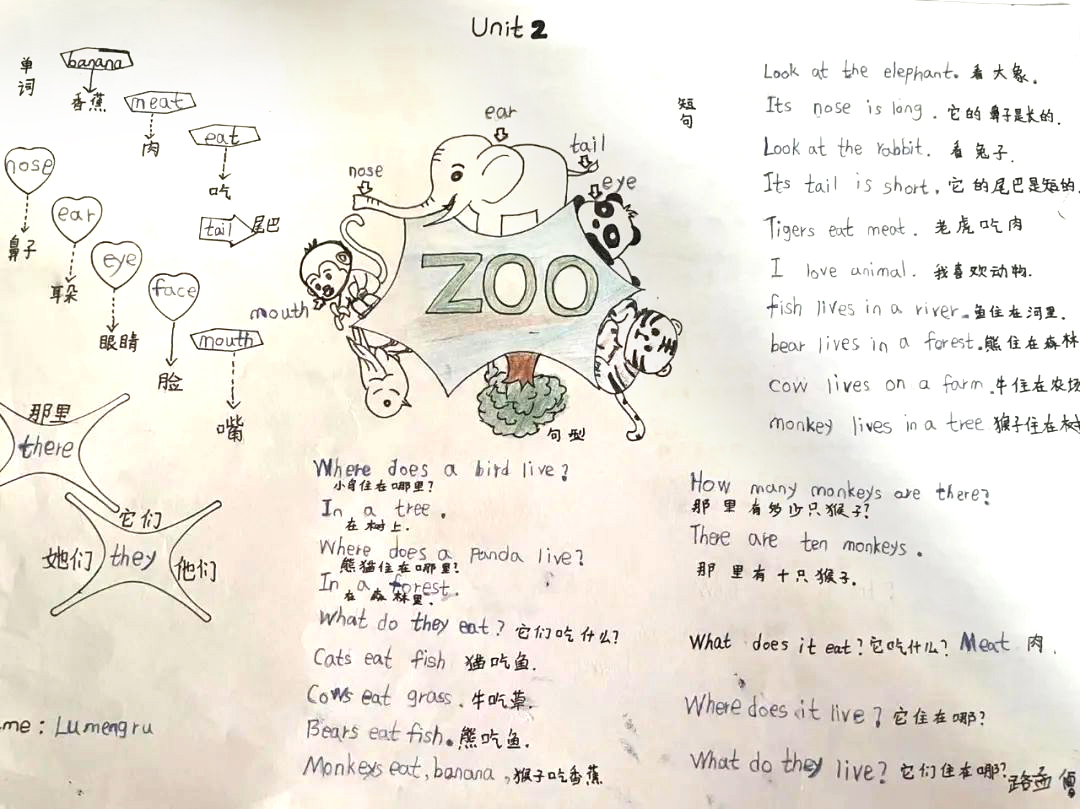 Unit 2
单词
banana
香蕉
meat
肉
eat
吃
tail 尾巴
nose
鼻子
ear
耳朵
eye
眼睛
face
脸
mouth
嘴
那里
there
它们
她们 they 他们
me: Lumengru
ear
tail
nose
eye
mouth
ZOO
短句
Look at the elephant. 看大象.
Its nose is long. 它的鼻子是长的.
Look at the rabbit. 看兔子.
Its tail is short. 它的尾巴是短的.
Tigers eat meat. 老虎吃肉
I love animal. 我喜欢动物.
fish lives in a river. 鱼住在河里.
bear lives in a forest. 熊住在森林
cow lives on a farm. 牛住在农场
monkey lives in a tree 猴子住在树
句型
Where does a bird live?
小鸟住在哪里?
In a tree.
在树上.
Where does a Panda live?
熊猫住在哪里?
In a forest.
在森林里.
What do they eat? 它们吃什么?
Cats eat fish 猫吃鱼.
Cows eat grass. 牛吃草.
Bears eat fish. 熊吃鱼.
Monkeys eat, banana, 猴子吃香蕉
How many monkeys are there?
那里有多少只猴子?
There are ten monkeys.
那里有十只猴子.
What does it eat? 它吃什么? Meat 肉.
Where does it live? 它住在哪?
What do they live? 它们住在哪?
路孟